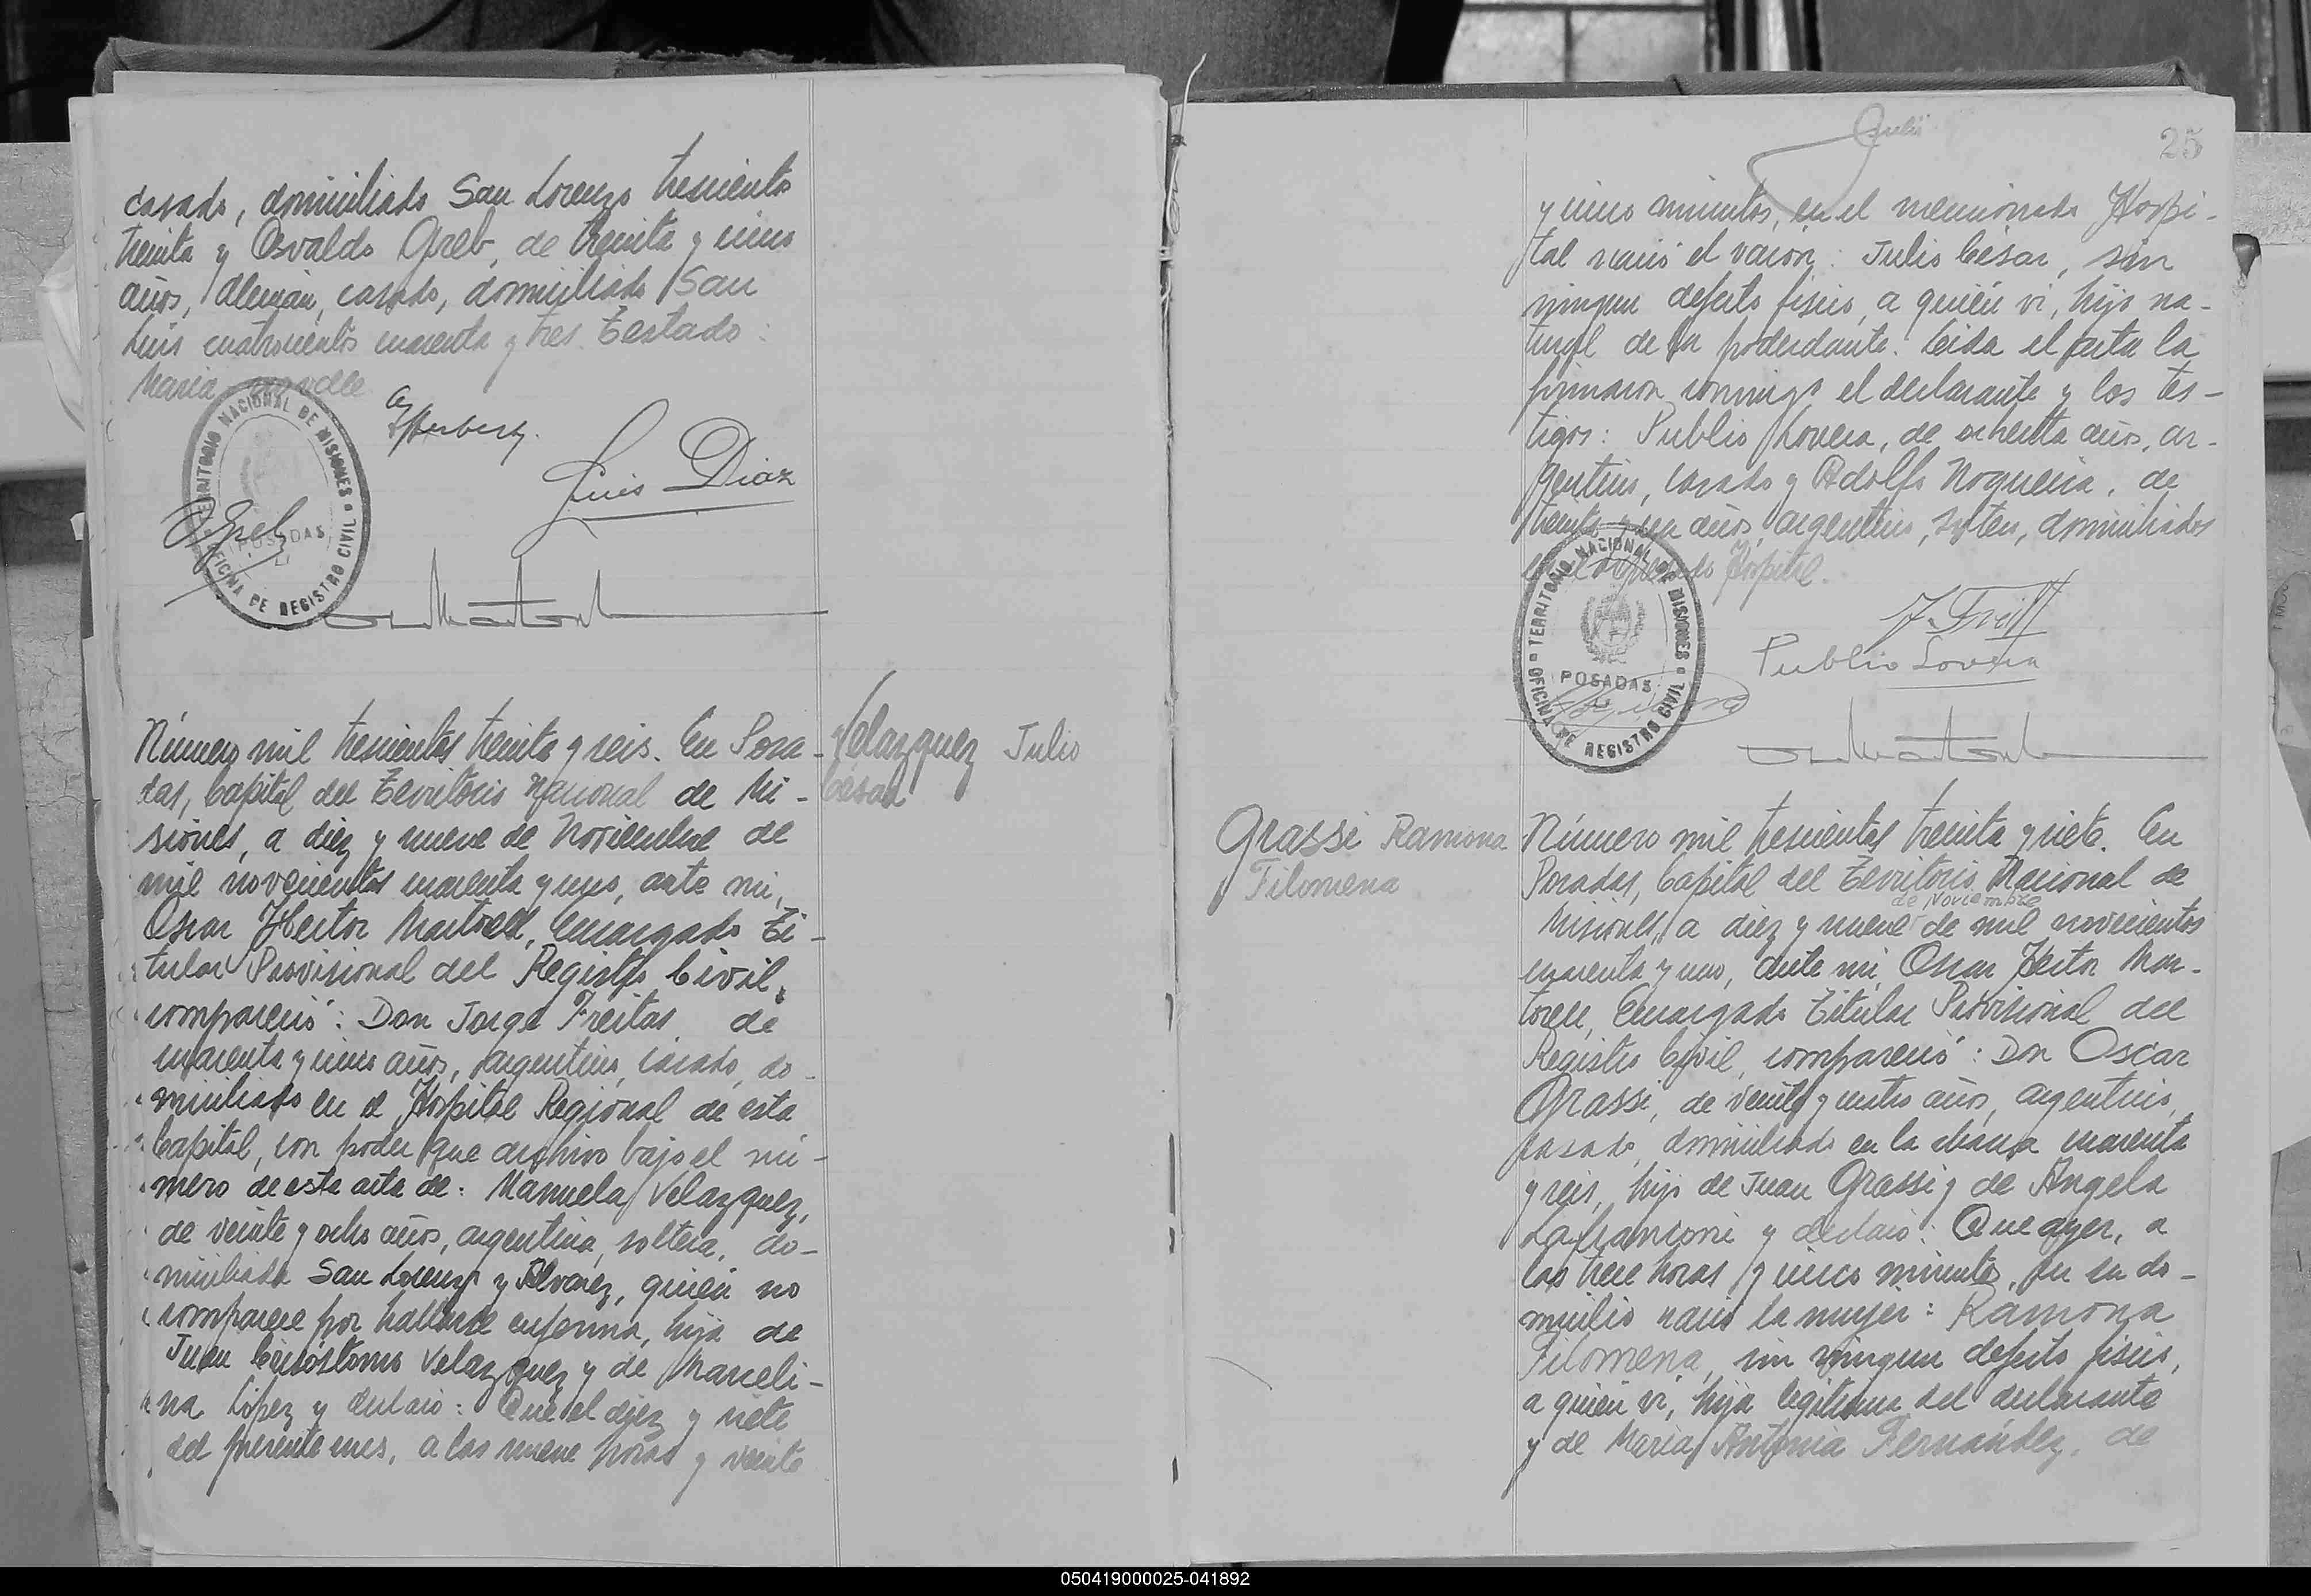 casado, domiciliado San Lorenzo trescientos
treinta y Osvaldo Greb, de treinta y cinco
años, alemán, casado, domiciliado San
Luis cuatrocientos cuarenta y tres. Testado:
María
Luis Diaz
TERRITORIO NACIONAL DE MISIONES
POSADAS
OFICINA DE REGISTRO CIVIL
Número mil trescientos treinta y seis. En Posa-
das, Capital del Territorio Nacional de Mi-
siones, a diez y nueve de Noviembre de
mil novecientos cuarenta y uno, ante mi,
Oscar Hector Martorell, Encargado Ti-
tular Provisional del Registro Civil,
compareció: Don Jorge Freitas de
cuarenta y cinco años, argentino, casado, do-
miciliado en el Hospital Regional de esta
Capital, con poder que archivo bajo el nú-
mero de esta acta de: Manuela Velazquez,
de veinte y ocho años, argentina, soltera, do-
miciliada San Lorenzo y Alvarez, quien no
comparece por hallarse enferma, hija de
Juan Crisóstomo Velazquez y de Marceli-
na López y declaró: Que el diez y siete
del presente mes, a las nueve horas y veinte
Velazquez Julio
César
25
y cinco minutos, en el mencionado Hospi-
tal nació el varón: Julio César, sin
ningun defecto fisico, a quién vi, hijo na-
tural de su poderdante. Leida el acta la
firmaron conmigo el declarante y los tes-
tigos: Publio Lovera, de ochenta años, ar-
gentino, casado y Adolfo Nogueira, de
treinta y un años, argentino, soltero, domiciliados
Hospital.
Publio Lovera
TERRITORIO NACIONAL DE MISIONES
POSADAS
OFICINA DE REGISTRO CIVIL
Grassi Ramona
Filomena
Número mil trescientos treinta y siete. En
Posadas, Capital del Territorio Nacional de
de Noviembre
Misiones, a diez y nueve de mil novecientos
cuarenta y uno, ante mi, Oscar Hector Mar-
torell, Encargado Titular Provisional del
Registro Civil, compareció: Don Oscar
Grassi, de veinte y cuatro años, argentino,
casado, domiciliado en la chacra cuarenta
y seis, hijo de Juan Grassi y de Angela
Lafranconi y declaró: Que ayer, a
las trece horas y cinco minutos, en su do-
micilio nació la mujer: Ramona
Filomena, sin ningun defecto fisico,
a quien vi, hija legitima del declarante
y de María Antonia Fernández, de
050419000025-041892